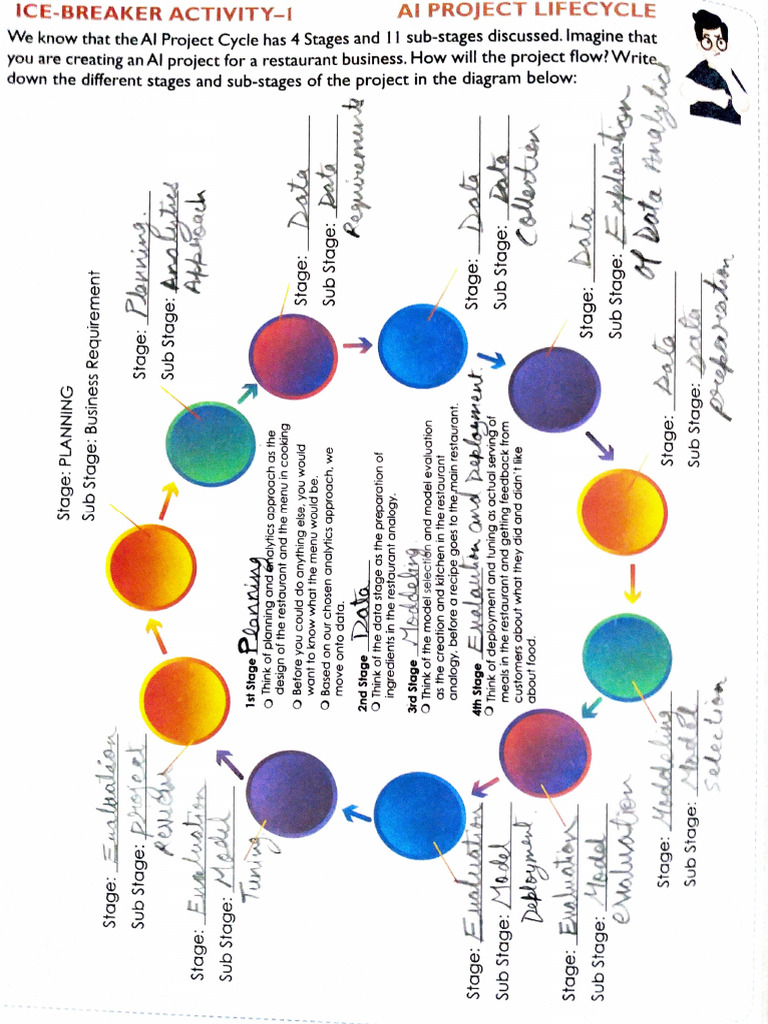 ICE-BREAKER ACTIVITY–1
AI PROJECT LIFECYCLE
We know that the AI Project Cycle has 4 Stages and 11 sub-stages discussed. Imagine that
you are creating an AI project for a restaurant business. How will the project flow? Write
down the different stages and sub-stages of the project in the diagram below:
Stage: PLANNING
Sub Stage: Business Requirement
Stage: Planning.
Sub Stage: Analytics
Approach
Stage: Data
Sub Stage: Data
Requirements
Stage: Data
Sub Stage: Data
Collection
Stage: Data
Sub Stage: Exploration
of Data Analytics
Stage: Data
Sub Stage: Data
preparation
Stage: Moddeling
Sub Stage: Model
selection
Stage: Evaluation
Sub Stage: Model
evaluation
Stage: Evaluation
Sub Stage: Model
Deployment.
Stage: Evaluation
Sub Stage: Model
Tuning
Stage: Evaluation
Sub Stage: project
review
1st Stage Planning
Think of planning and analytics approach as the
design of the restaurant and the menu in cooking
Before you could do anything else, you would
want to know what the menu would be.
Based on our chosen analytics approach, we
move onto data.
2nd Stage Data
Think of the data stage as the preparation of
ingredients in the restaurant analogy.
3rd Stage Moddeling.
Think of the model selection and model evaluation
as the creation and kitchen in the restaurant
analogy, before a recipe goes to the main restaurant.
4th Stage Evalaution and Deployment.
Think of deployment and tuning as actual serving of
meals in the restaurant and getting feedback from
customers about what they did and didn't like
about food.